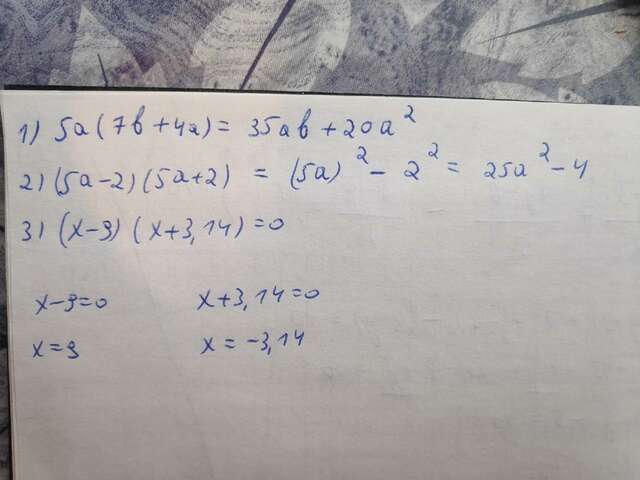 1) 5a(7b+4a)= 35ab+20a²
2) (5a-2)(5a+2) = (5a)² - 2² = 25a² - 4
3) (x-9)(x+3,14)=0
x-9=0 x+3,14=0
x=9 x=-3,14